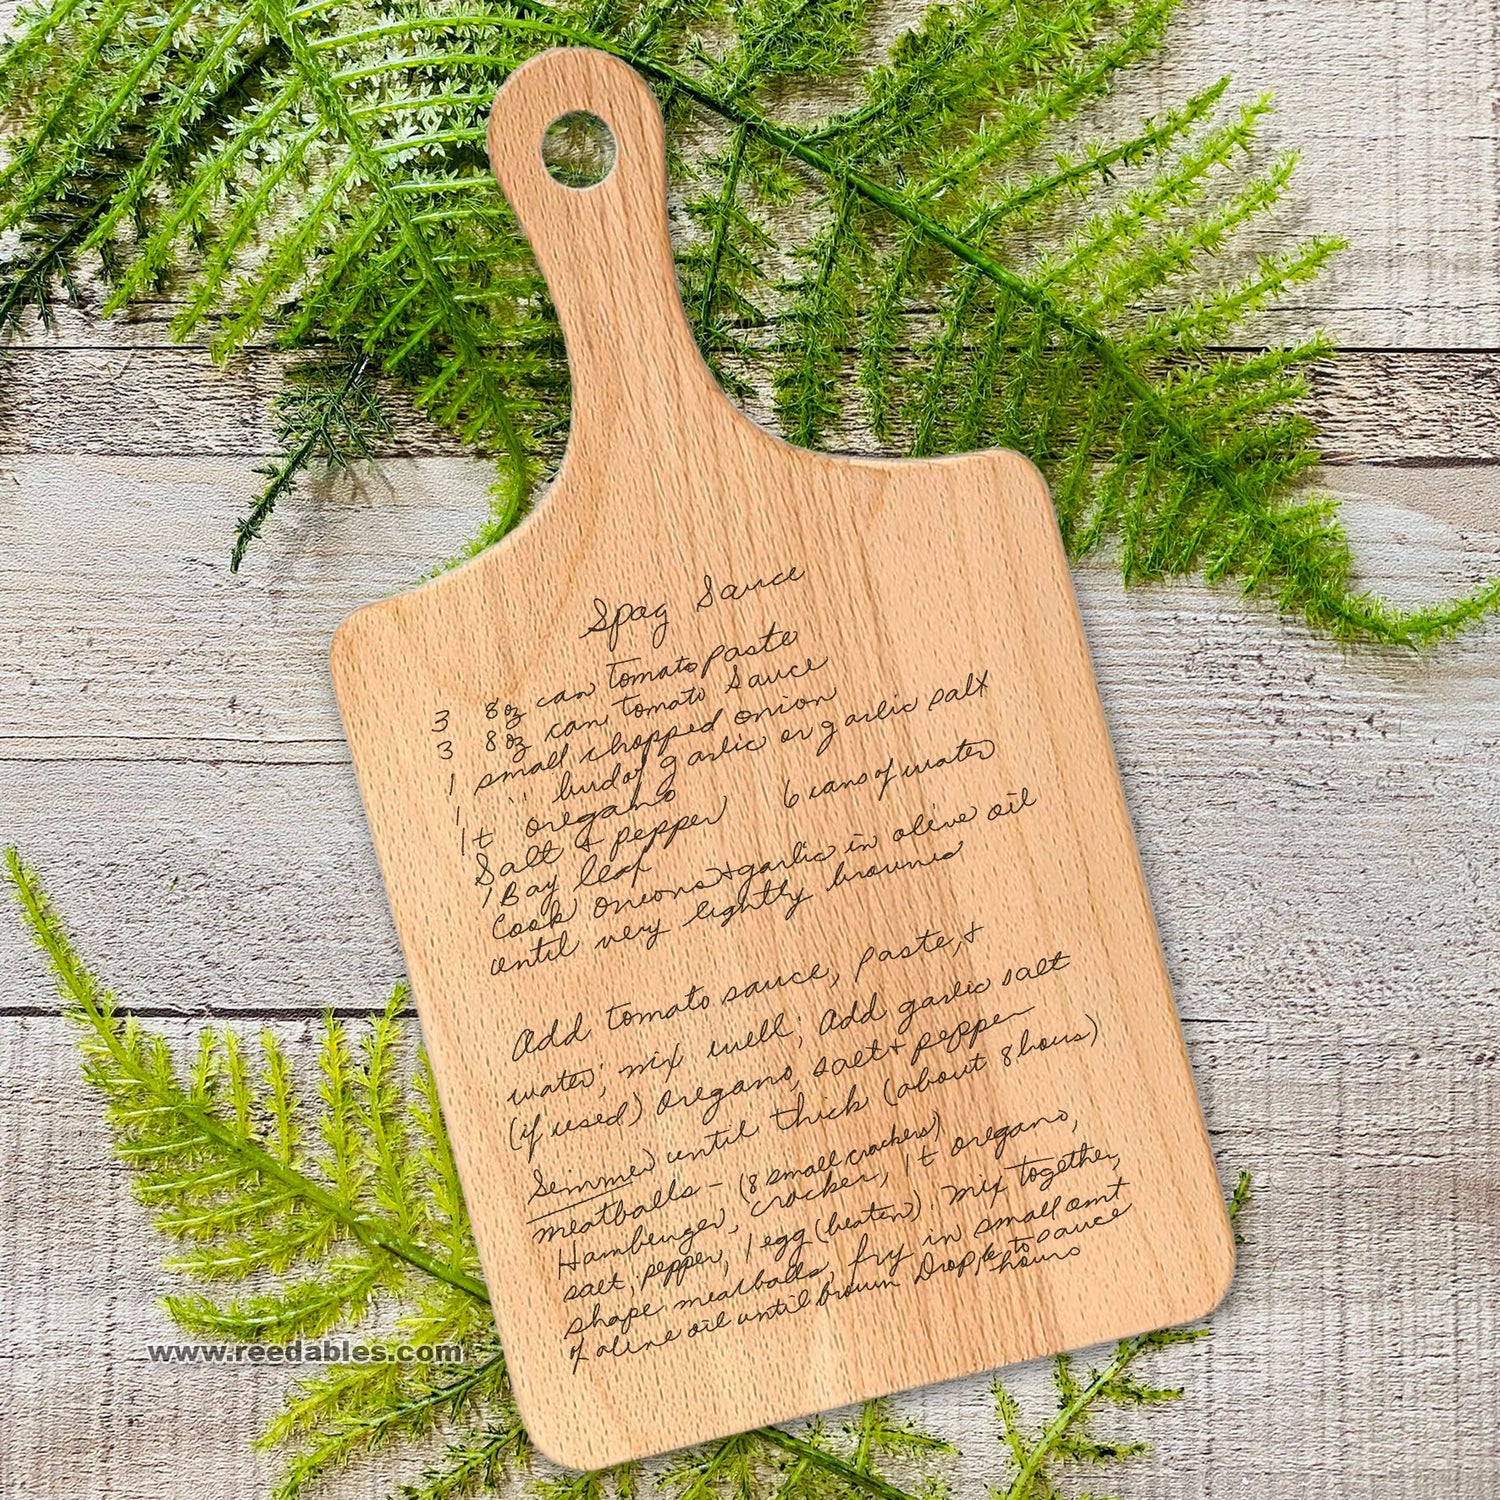 Spag Sauce
3 8oz can tomato paste
3 8oz can tomato sauce
1 small chopped onion
1 " bud of garlic or garlic salt
1t oregano
Salt & pepper 6 cans of water
1 Bay leaf
Cook onions + garlic in olive oil
until very lightly browned
Add tomato sauce, paste, +
water; mix well; Add garlic salt
(if used) oregano, salt + pepper
Simmer until thick (about 8 hours)
meatballs - (8 small crackers)
Hamburger, cracker, 1t oregano,
salt, pepper, 1 egg (beaten). Mix together,
shape meatballs, fry in small amt
of olive oil until brown Drop to sauce
hours
www.reedables.com